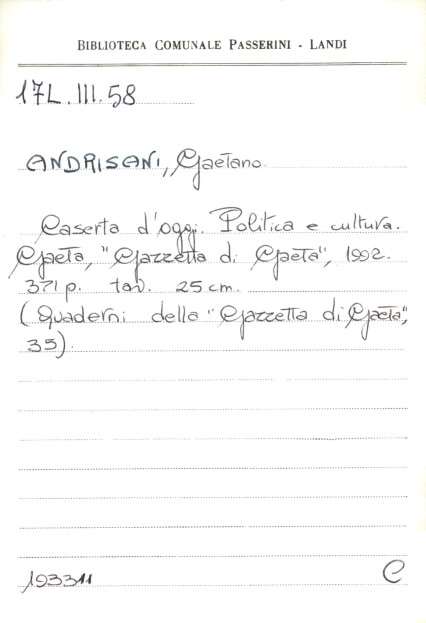 BIBLIOTECA COMUNALE PASSERINI - LANDI
17L.III.58
ANDRISANI, Gaetano
Caserta d'oggi. Politica e cultura.
Gaeta, "Gazzetta di Gaeta", 1992.
371 p. tav. 25 cm.
(Quaderni della "Gazzetta di Gaeta",
35).
193311
C